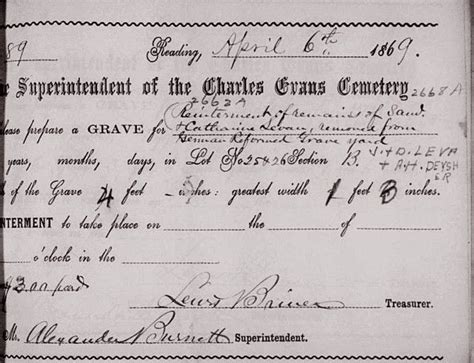 89 Reading, April 6th 1869.
e Superintendent of the Charles Evans Cemetery
2662A 2668A
Reinterment of remains of Saml.
lease prepare a GRAVE for + Catharine Levan, removed from
German Reformed Grave yard
years, months, days, in Lot No 25426 Section B.
of the Grave 4 feet inches: greatest width 1 feet 3 inches.
INTERMENT to take place on the
o'clock in the
300 paid
Lewis Briner Treasurer.
M. Alexander Burnett Superintendent.